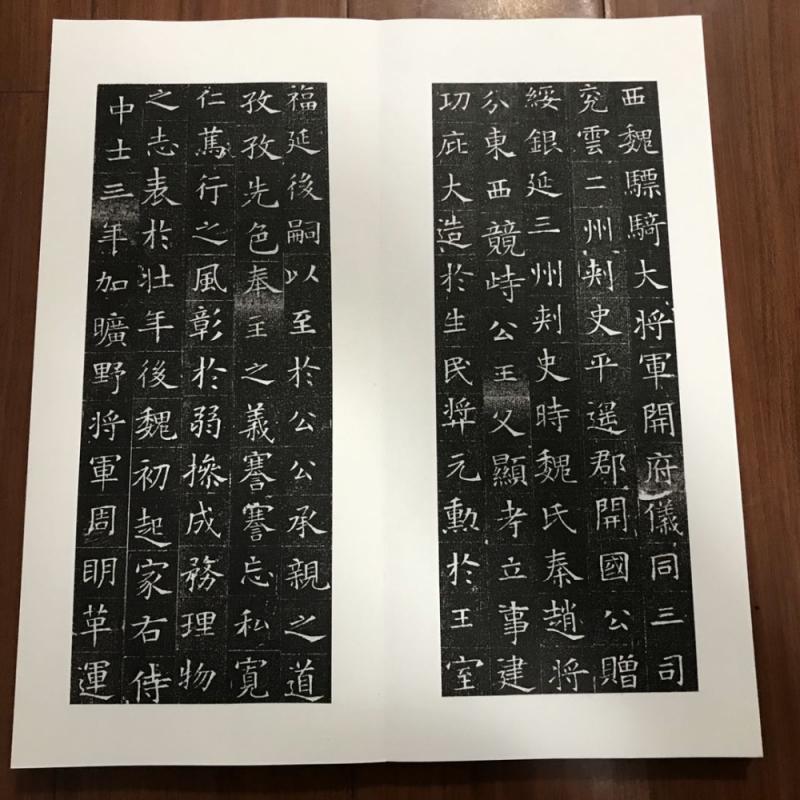 西魏驃騎大将軍開府儀同三司
兖雲二州刾史平遥郡開國公贈
綏銀延三州刾史時魏氏秦趙将
分東西競峙公王父顯考立事建
功庇大造於生民弉元勳於王室
福延後嗣以至於公公承親之道
孜孜先色奉主之義謇謇忘私寛
仁蔫行之風彰於弱操成務理物
之志表於壮年後魏初起家右侍
中士三年加曠野将軍周明革運